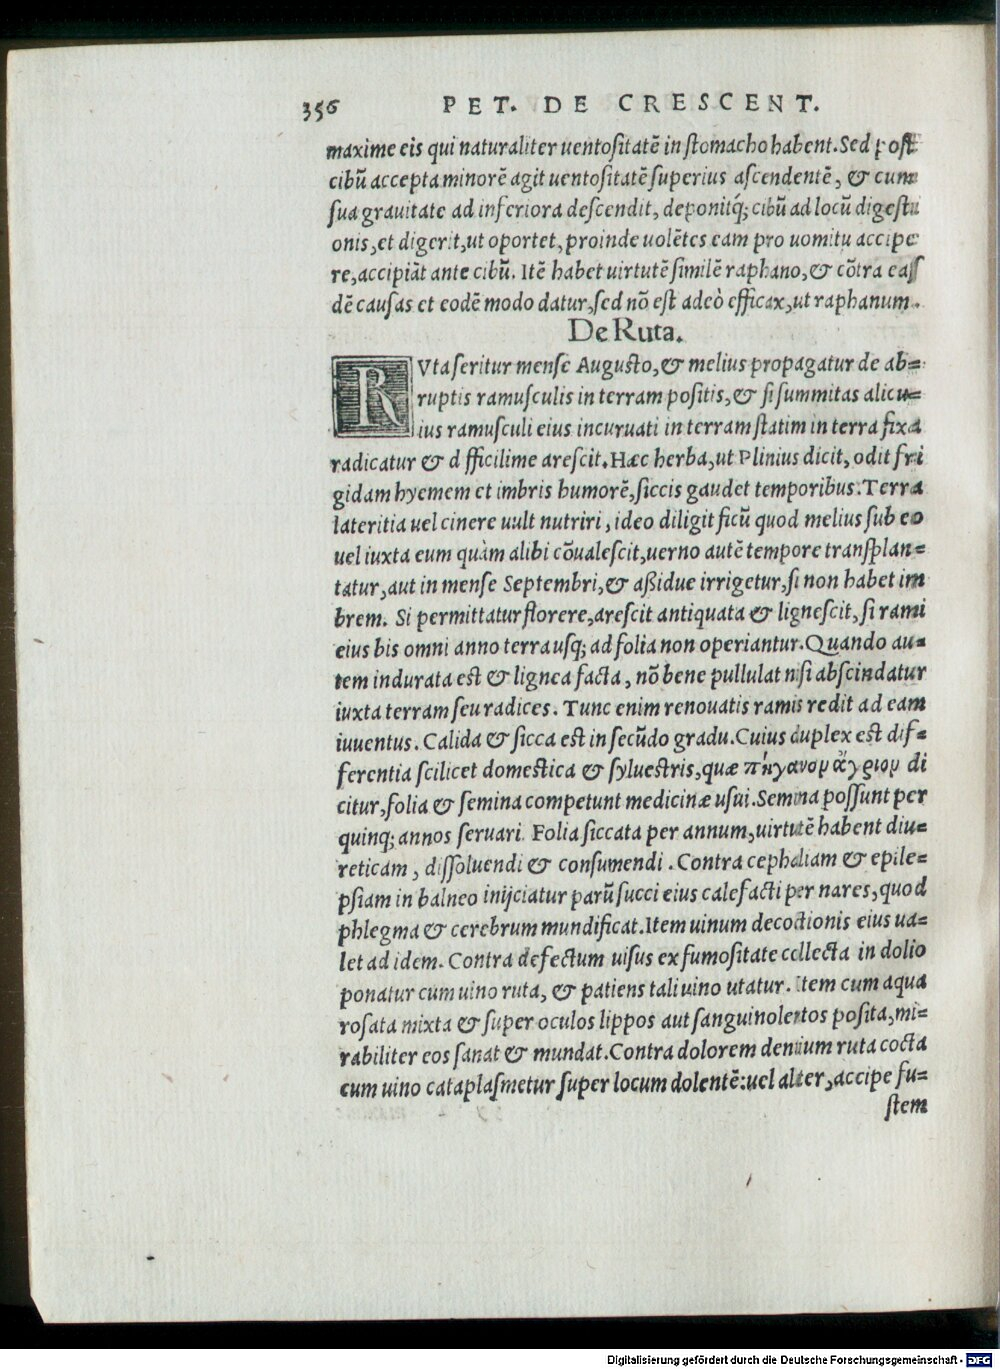 356 PET. DE CRESCENT.
maxime eis qui naturaliter uentositatē in stomacho habent. Sed post
cibū accepta minorē agit uentositatē superius ascendentē, & cum
sua grauitate ad inferiora descendit, deponitq́; cibū ad locū digesti
onis, et digerit, ut oportet, proinde uolētes eam pro uomitu accipe
re, accipiāt ante cibū. Itē habet uirtutē similē raphano, & cōtra eas
dē causas et eodē modo datur, sed nō est adeò efficax, ut raphanum.
De Ruta.
RVta seritur mense Augusto, & melius propagatur de ab=
ruptis ramusculis in terram positis, & si summitas alicu=
ius ramusculi eius incuruati in terram statim in terra fixa
radicatur & d fficilime arescit. Hæc herba, ut Plinius dicit, odit fri
gidam hyemem et imbris humorē, siccis gaudet temporibus. Terra
lateritia uel cinere uult nutriri, ideo diligit ficū quod melius sub eo
uel iuxta eum quàm alibi cōualescit, uerno autē tempore transplan=
tatur, aut in mense Septembri, & aßidue irrigetur, si non habet im
brem. Si permittatur florere, arescit antiquata & lignescit, si rami
eius bis omni anno terra usq; ad folia non operiantur. Quando au=
tem indurata est & lignea facta, nō bene pullulat nisi abscindatur
iuxta terram seu radices. Tunc enim renouatis ramis redit ad eam
iuuentus. Calida & sicca est in secūdo gradu. Cuius duplex est dif=
ferentia scilicet domestica & syluestris, quæ πήγανον ἄγριον di
citur, folia & semina competunt medicinæ usui. Semina possunt per
quinq; annos seruari. Folia siccata per annum, uirtutē habent diu=
reticam, dissoluendi & consumendi. Contra cephaliam & epile=
psiam in balneo inijciatur parū succi eius calefacti per nares, quod
phlegma & cerebrum mundificat. Item uinum decoctionis eius ua=
let ad idem. Contra defectum uisus ex fumositate collecta in dolio
ponatur cum uino ruta, & patiens tali uino utatur. Item cum aqua
rosata mixta & super oculos lippos aut sanguinolentos posita, mi=
rabiliter eos sanat & mundat. Contra dolorem dentium ruta cocta
cum uino cataplasmetur super locum dolentē: uel aliter, accipe fu=
stem
Digitalisierung gefördert durch die Deutsche Forschungsgemeinschaft - DFG